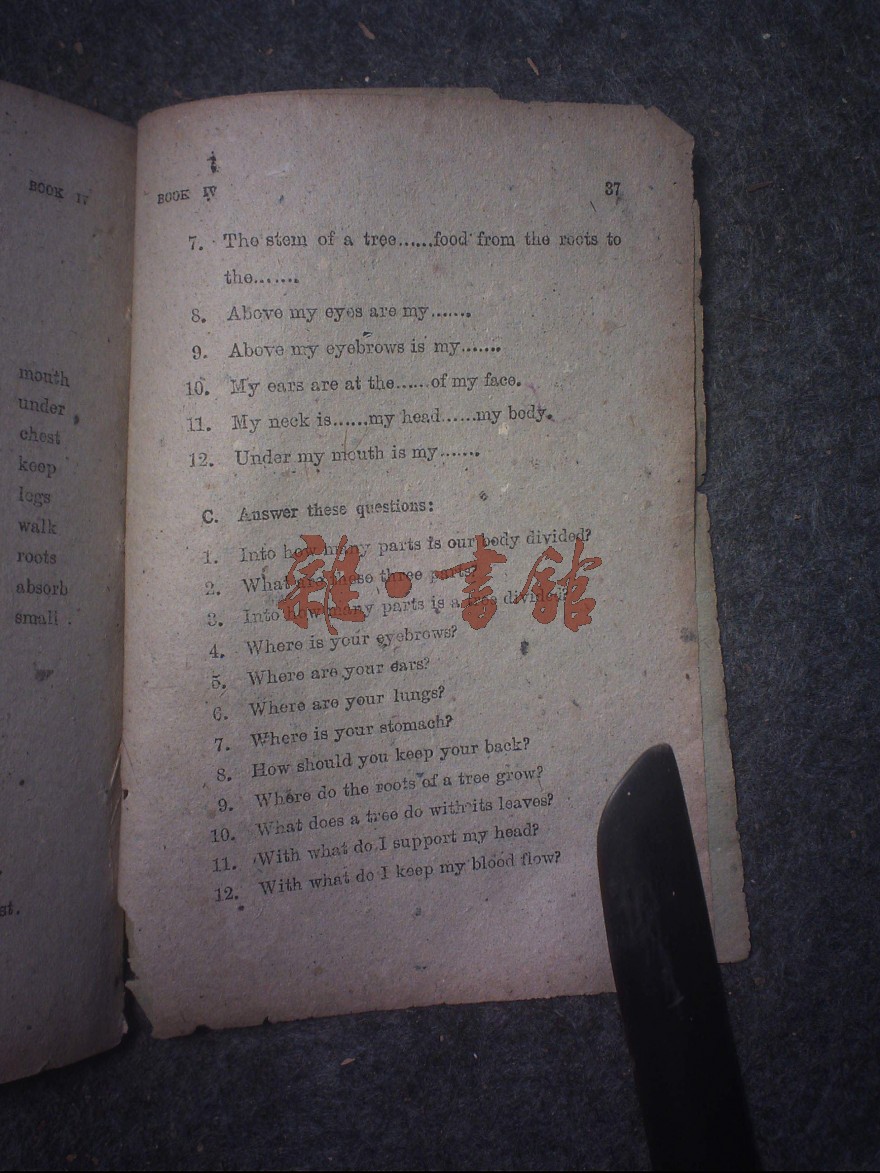 BOOK IV
mouth
under
chest
keep
legs
walk
roots
absorb
small
st.
BOOK IV 37
7. The stem of a tree......food from the roots to
the.......
8. Above my eyes are my.......
9. Above my eyebrows is my.......
10. My ears are at the......of my face.
11. My neck is......my head......my body.
12. Under my mouth is my.......
C. Answer these questions:
1. Into how many parts is our body divided?
2. What are these three parts?
3. Into how many parts is a tree divided?
4. Where is your eyebrows?
5. Where are your ears?
6. Where are your lungs?
7. Where is your stomach?
8. How should you keep your back?
9. Where do the roots of a tree grow?
10. What does a tree do with its leaves?
11. With what do I support my head?
12. With what do I keep my blood flow?
雜·書館